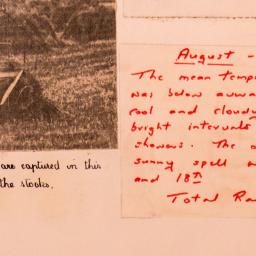 are captured in this
the stooks.
August -
The mean temp
was below
cool and cloudy
bright intervals
showers. The
sunny spell
and 18th
Total Ra